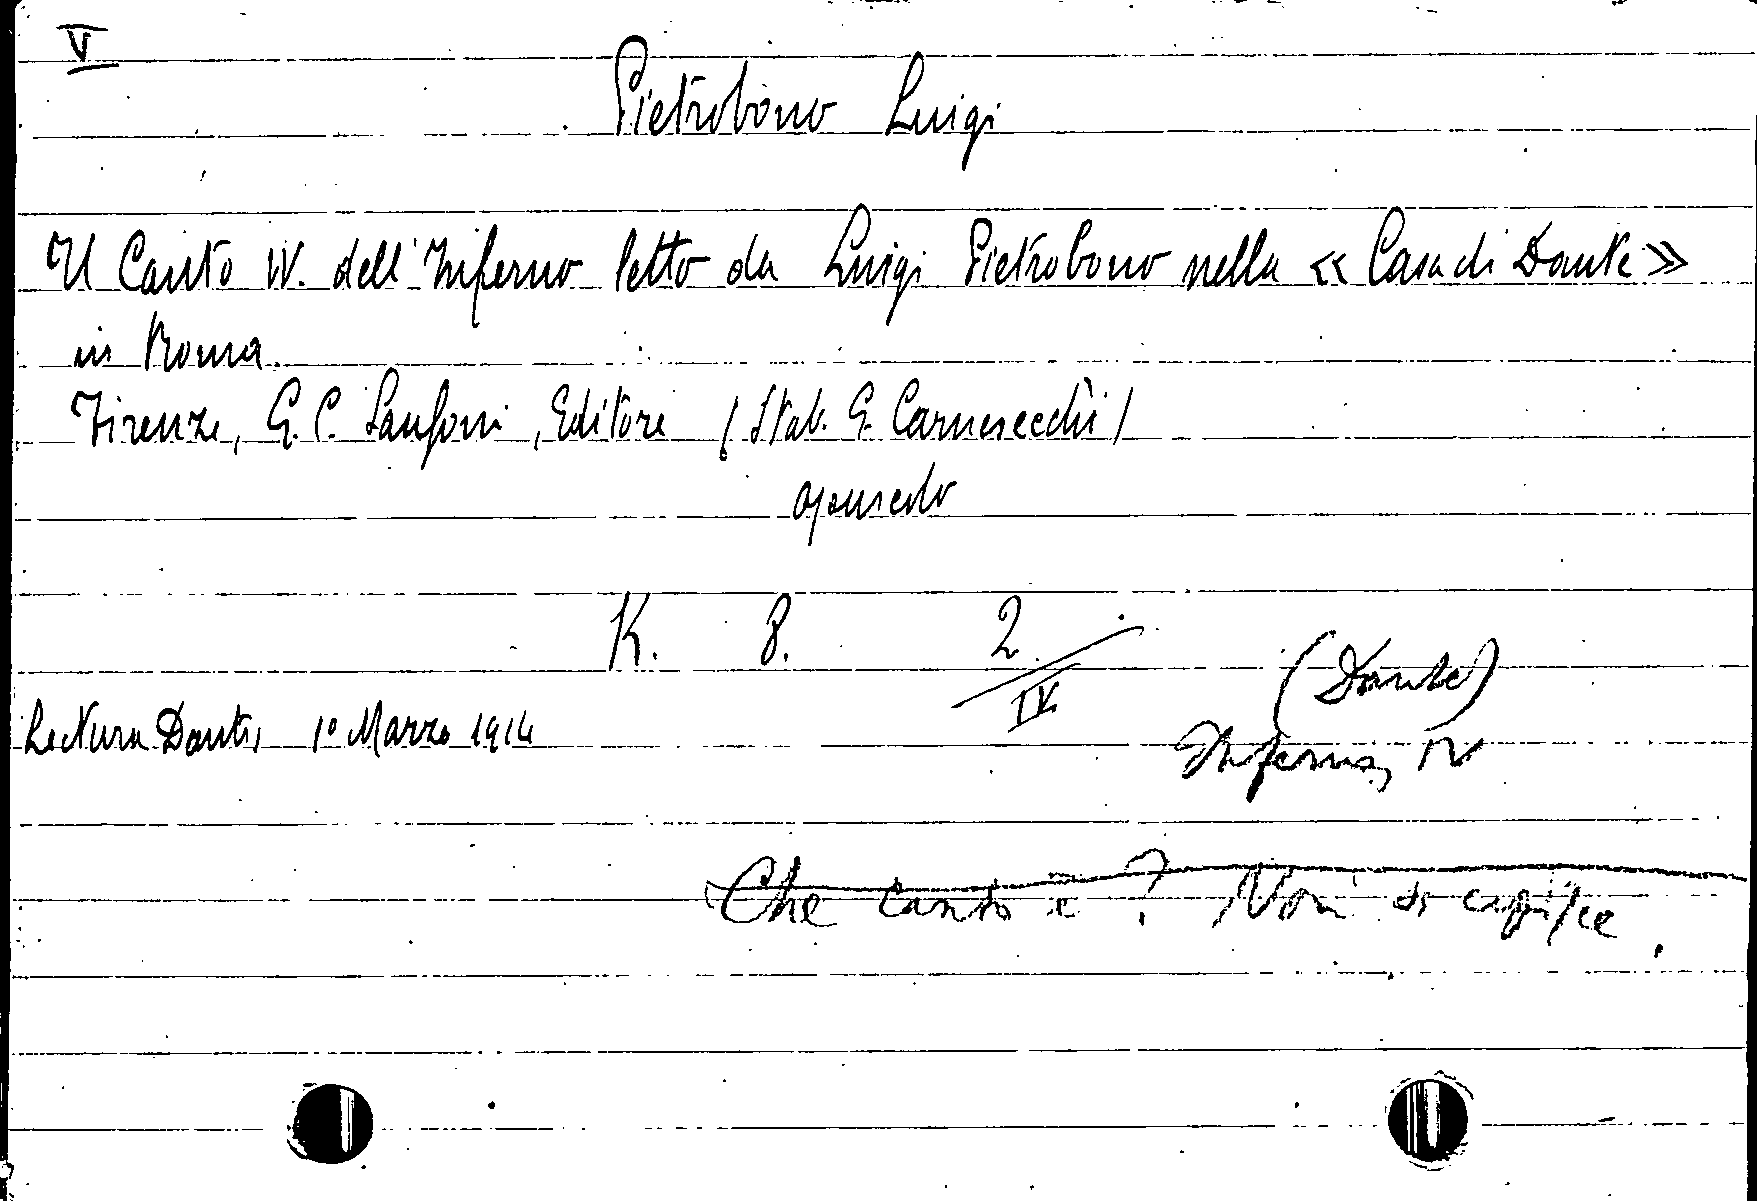 V
Pietrobono Luigi
Il Canto IV. dell'Inferno letto da Luigi Pietrobono nella « Casa di Dante »
in Roma.
Firenze, G. C. Sansoni, Editore (Stab. G. Carnesecchi)
opuscolo
K. 8. 2/IV.
(Dante)
Lectura Dantis, 1° Marzo 1914
Inferno, IV
Che canto è? Non si capisce.